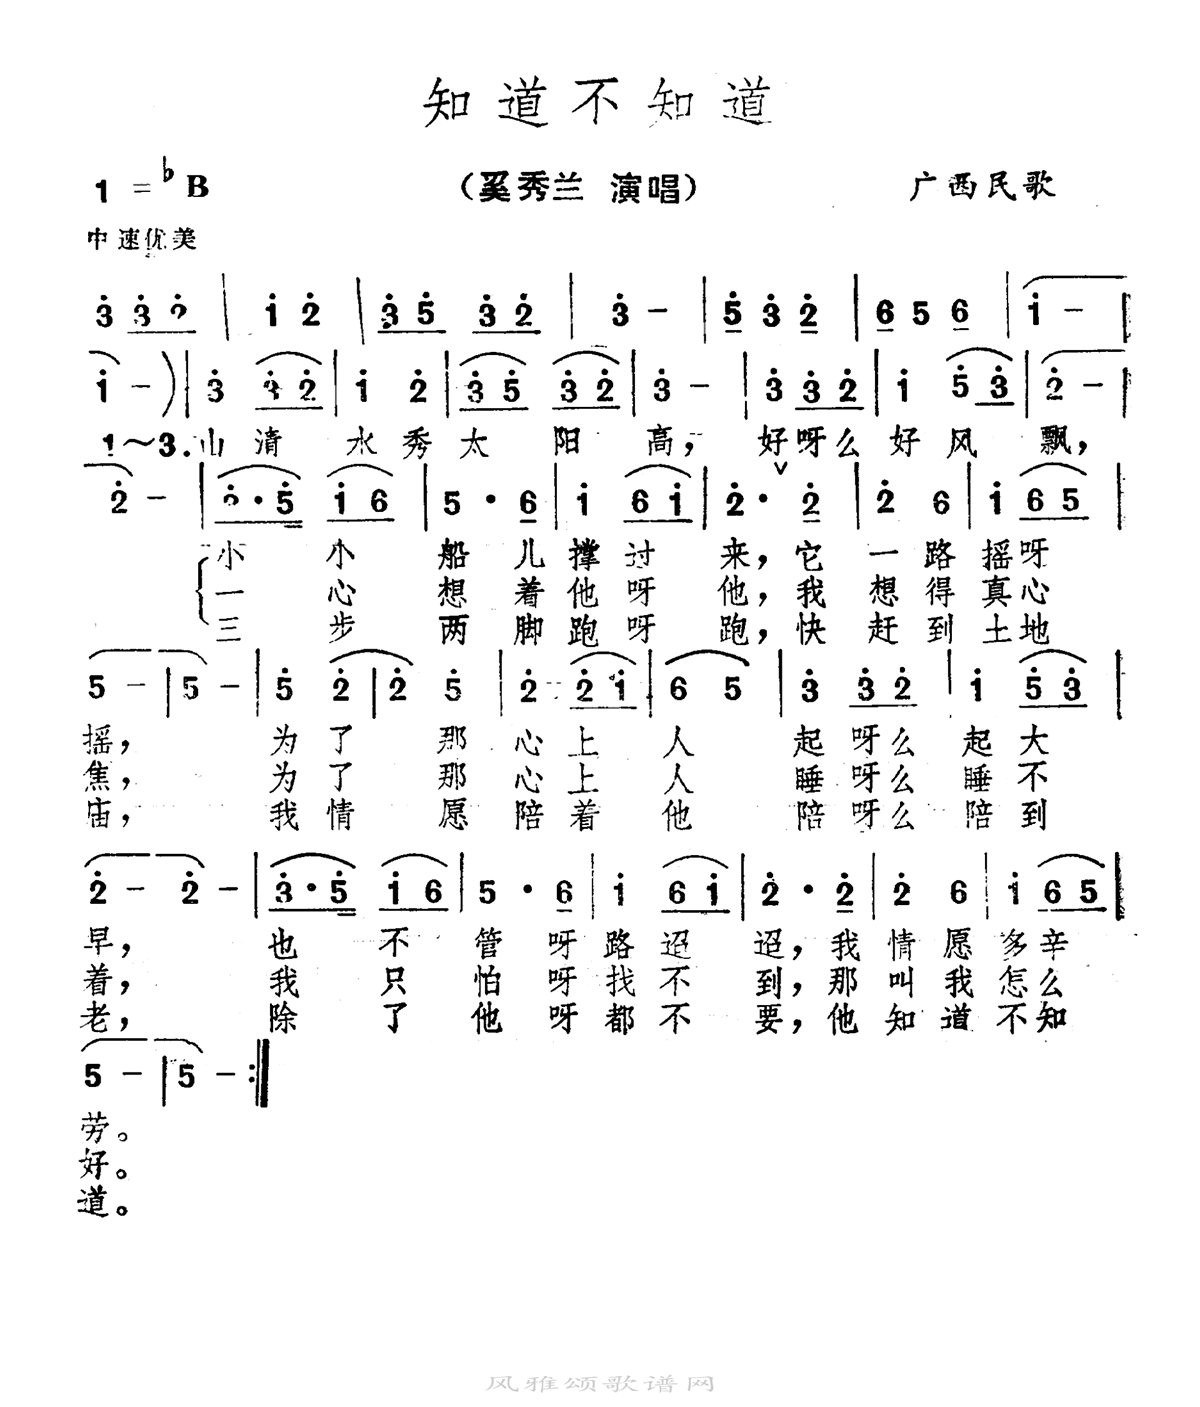 知道不知道
1=♭B （奚秀兰 演唱） 广西民歌
中速优美
3̇ 3̇ 2̇ | 1̇ 2̇ | 3̇ 5̇ 3̇ 2̇ | 3̇ － | 5̇ 3̇ 2̇ | 6 5 6 | 1̇ － |
1̇ －) | 3̇ 3̇ 2̇ | 1̇ 2̇ | 3̇ 5̇ 3̇ 2̇ | 3̇ － | 3̇ 3̇ 2̇ | 1̇ 5̇ 3̇ | 2̇ － |
1～3.山清 水秀太 阳 高，好呀么好风 飘，
2̇ － | 2̇ · 5̇ 1̇ 6 | 5 · 6 | 1̇ 6 1̇ | 2̇ · ∨ 2̇ | 2̇ 6 | 1̇ 6 5 |
小 小 船 儿撑过 来，它一路摇呀
一 心 想 着他呀 他，我想得真心
三 步 两 脚跑呀 跑，快赶到土地
5 － | 5 － | 5̇ 2̇ | 2̇ 5̇ | 2̇ 2̇ 1̇ | 6 5 | 3̇ 3̇ 2̇ | 1̇ 5̇ 3̇ |
摇，为了 那心上 人 起呀么起大
焦，为了 那心上 人 睡呀么睡不
庙，我情 愿陪着 他 陪呀么陪到
2̇ － 2̇ － | 3̇ · 5̇ 1̇ 6 | 5 · 6 | 1̇ 6 1̇ | 2̇ · 2̇ | 2̇ 6 | 1̇ 6 5 |
早，也 不 管 呀路迢 迢，我情愿多辛
着，我 只 怕 呀找不 到，那叫我怎么
老，除 了 他 呀都不 要，他知道不知
5 － | 5 － :‖
劳。
好。
道。
风雅颂歌谱网